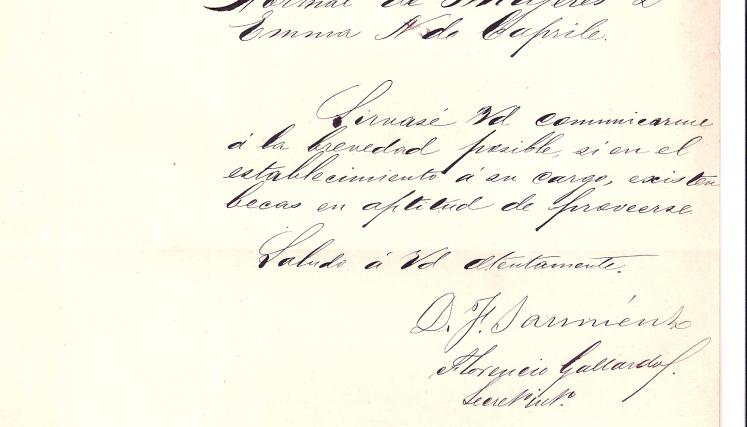 Normal de Mujeres D
Emma N. de Caprile.
Sirvasé Vd comunicarme
á la brevedad posible, si en el
establecimiento á su cargo, existen
becas en aptitud de proveerse.
Saludo á Vd atentamente.
D. F. Sarmiento
Florencio Gallardo
Secret. int.